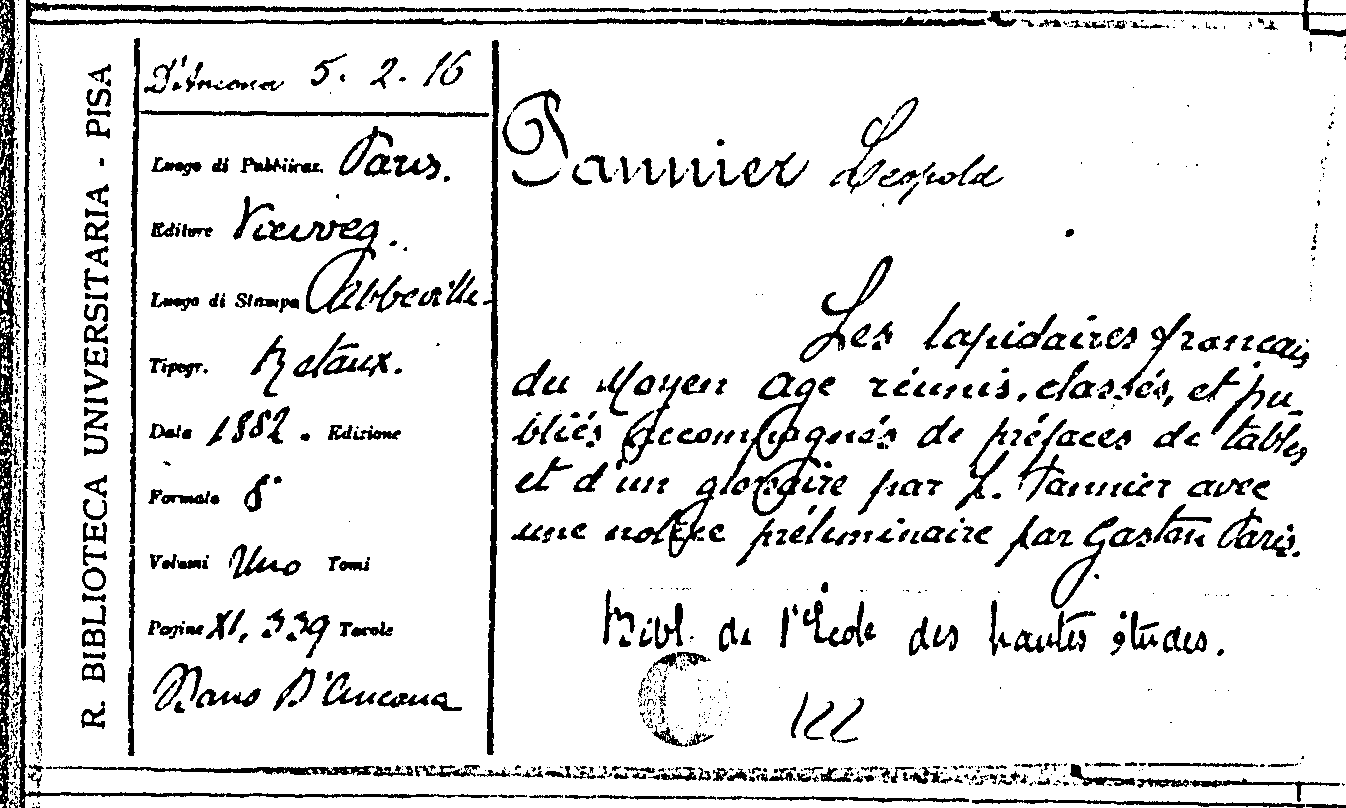 R. BIBLIOTECA UNIVERSITARIA - PISA
D'Ancona 5. 2. 16
Luogo di Pubblicaz. Paris.
Editore Vieweg.
Luogo di Stampa Abbeville.
Tipogr. Retaux.
Data 1882. Edizione
Formato 8°
Volumi Uno Tomi
Pagine XI, 339 Tavole
D'Ancona
Pannier Leopold
Les lapidaires français
du Moyen Age réunis, classés, et pu-
bliés accompagnés de préfaces de tables
et d'un glossaire par L. Pannier avec
une notice préliminaire par Gaston Paris.
Bibl. de l'École des hautes études.